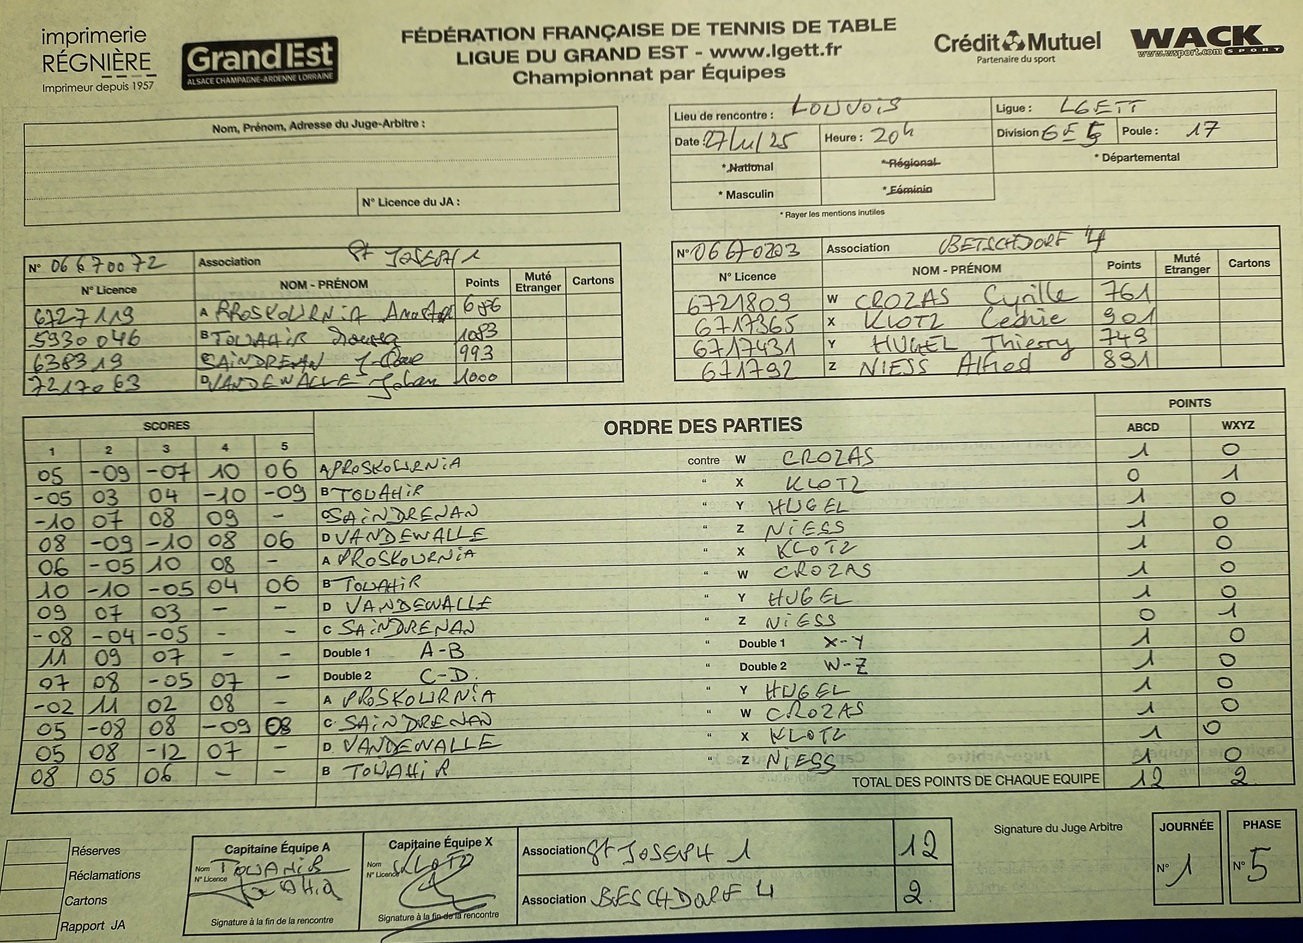 imprimerie
RÉGNIÈRE
Imprimeur depuis 1957
GrandEst
ALSACE CHAMPAGNE-ARDENNE LORRAINE
FÉDÉRATION FRANÇAISE DE TENNIS DE TABLE
LIGUE DU GRAND EST - www.lgett.fr
Championnat par Équipes
Crédit Mutuel
Partenaire du sport
WACK
www.wsport.com SPORT
Nom, Prénom, Adresse du Juge-Arbitre :
N° Licence du JA :
Lieu de rencontre : LOUVOIS
Ligue : LGETT
Date : 27/11/25 Heure : 20h
Division GE5 Poule : 17
* National * Régional * Départemental
* Masculin * Féminin
* Rayer les mentions inutiles
N° 06670072 Association St JOSEPH 1
N° Licence NOM - PRÉNOM Points Muté Etranger Cartons
6727119 A PROSKOURNIA 686
5930046 B TOUAHIR 1083
638319 SAINDRENAN 993
7217063 D VANDEWALLE Johan 1000
N° 06670203 Association BETSCHDORF 4
N° Licence NOM - PRÉNOM Points Muté Etranger Cartons
6721809 W CROZAS Cyrille 761
6717365 X KLOTZ Cédric 901
6717431 Y HUGEL Thierry 749
671792 Z NIESS Alfred 891
SCORES ORDRE DES PARTIES POINTS
1 2 3 4 5 ABCD WXYZ
05 -09 -07 10 06 A PROSKOURNIA contre W CROZAS 1 0
-05 03 04 -10 -09 B TOUAHIR " X KLOTZ 0 1
-10 07 08 09 - C SAINDRENAN " Y HUGEL 1 0
08 -09 -10 08 06 D VANDEWALLE " Z NIESS 1 0
06 -05 10 08 - A PROSKOURNIA " X KLOTZ 1 0
10 -10 -05 04 06 B TOUAHIR " W CROZAS 1 0
09 07 03 - - D VANDEWALLE " Y HUGEL 1 0
-08 -04 -05 - - C SAINDRENAN " Z NIESS 0 1
11 09 07 - - Double 1 A-B " Double 1 X-Y 1 0
07 08 -05 07 - Double 2 C-D. " Double 2 W-Z 1 0
-02 11 02 08 - A PROSKOURNIA " Y HUGEL 1 0
05 -08 08 -09 08 C SAINDRENAN " W CROZAS 1 0
05 08 -12 07 - D VANDEWALLE " X KLOTZ 1 0
08 05 06 - - B TOUAHIR " Z NIESS 1 0
TOTAL DES POINTS DE CHAQUE EQUIPE 12 2
Réserves
Réclamations
Cartons
Rapport JA
Capitaine Équipe A
Nom TOUAHIR
N° Licence
Signature à la fin de la rencontre
Capitaine Équipe X
Nom KLOTZ
N° Licence
Signature à la fin de la rencontre
Association St JOSEPH 1 12
Association BESCHDORF 4 2
Signature du Juge Arbitre
JOURNÉE
N° 1
PHASE
N° 5